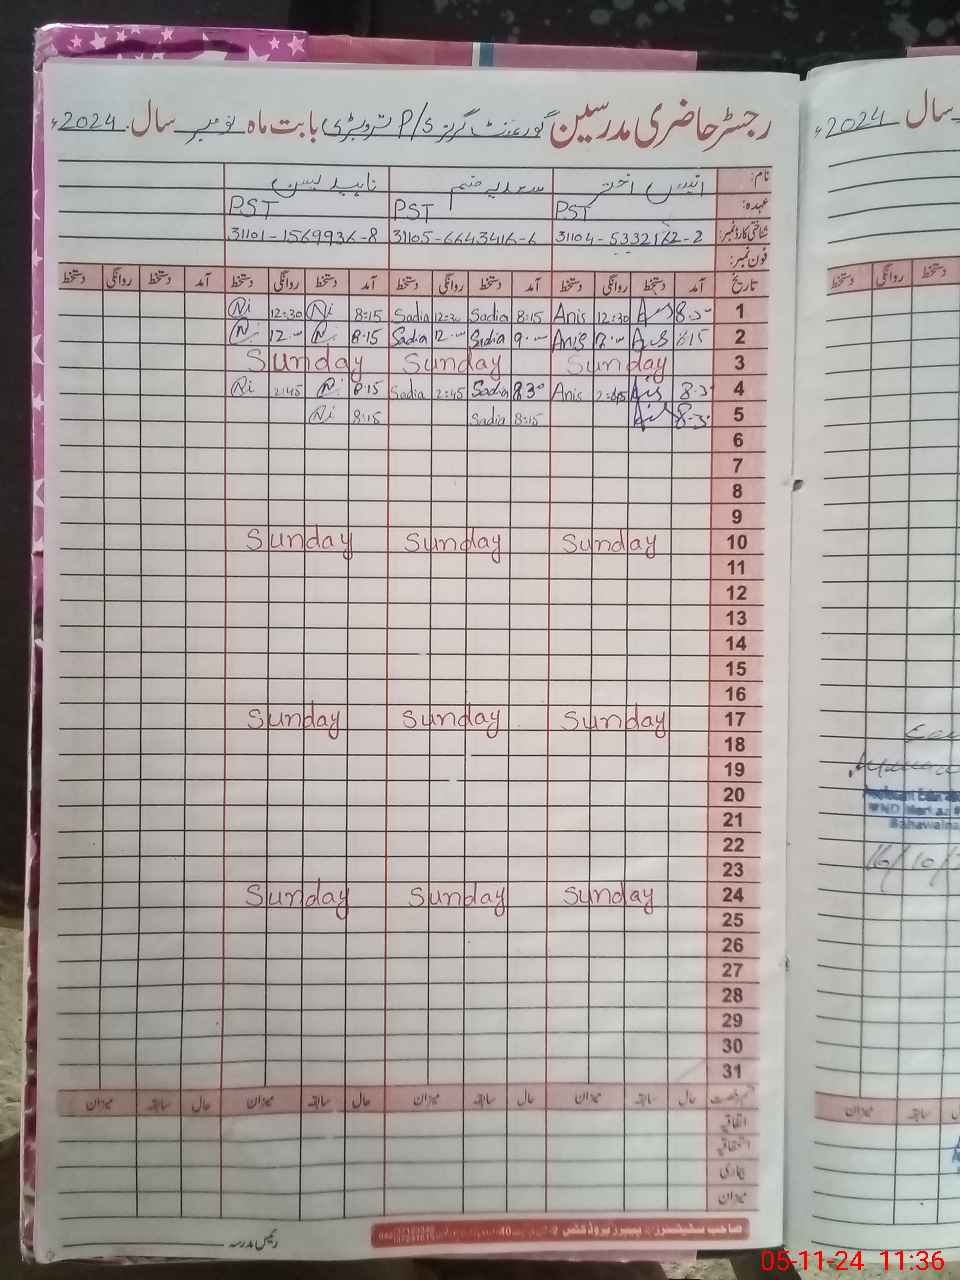 رجسٹر حاضری مدرسین گورنمنٹ گرلز P/S بابت ماہ نومبر سال 2024ء
نام: انیس اختر سعدیہ ناہید یسین
عہدہ: PST PST PST
شناختی کارڈ نمبر: 31104-5332162-2 31105-6643416-6 31101-1569936-8
فون نمبر:
تاریخ آمد دستخط روانگی دستخط آمد دستخط روانگی دستخط آمد دستخط روانگی دستخط آمد دستخط روانگی دستخط
1 12:30 Anis 8:15 Sadia 12:30 Sadia 8:15 Ni 12:30 Ni
2 8:15 Anis 9:00 Sadia 12:00 Sadia 8:15 Ni 12:00 Ni
3 Sunday Sunday Sunday
4 8:30 Anis 2:45 Anis 8:30 Sadia 2:45 Sadia 8:15 Ni 2:45 Ni
5 8:30 8:15 Sadia 8:15 Ni
6
7
8
9
10 Sunday Sunday Sunday
11
12
13
14
15
16
17 Sunday Sunday Sunday
18
19
20
21
22
23
24 Sunday Sunday Sunday
25
26
27
28
29
30
31
حال سابقہ میزان حال سابقہ میزان حال سابقہ میزان حال سابقہ میزان
اتفاقیہ
استحقاقیہ
بیماری
میزان
رئیس مدرسہ
سال 2024ء
دستخط روانگی دستخط
سابقہ میزان
16/10/
05-11-24 11:36